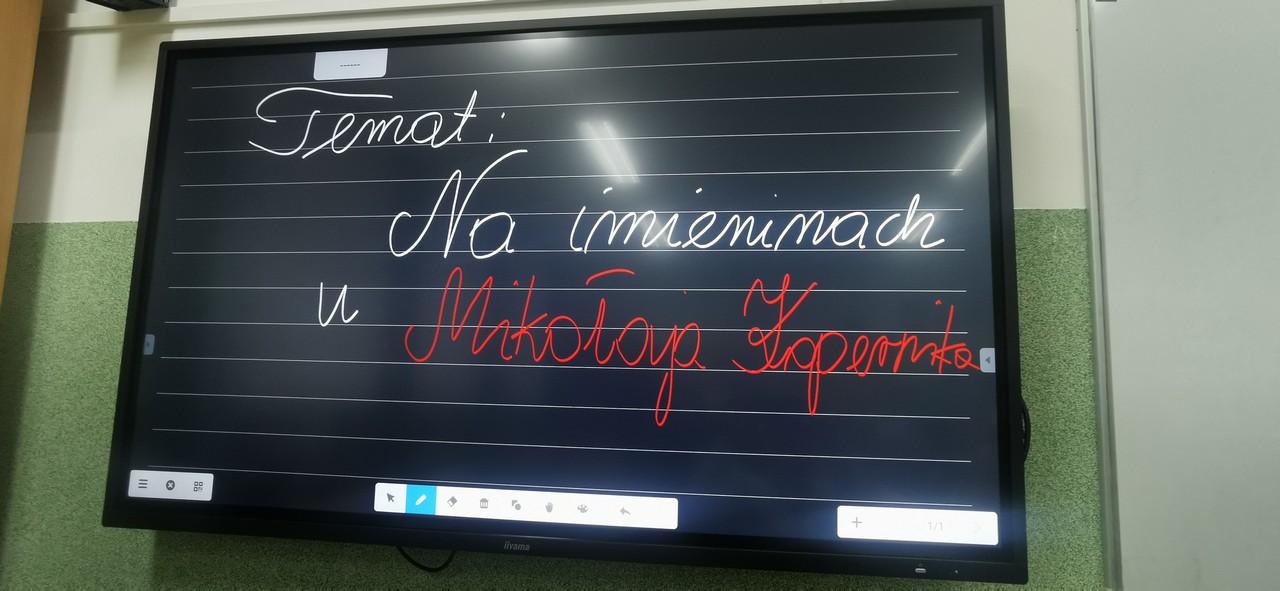 ------
Temat:
Na imieninach
u Mikołaja Kopernika
1/1
iiyama